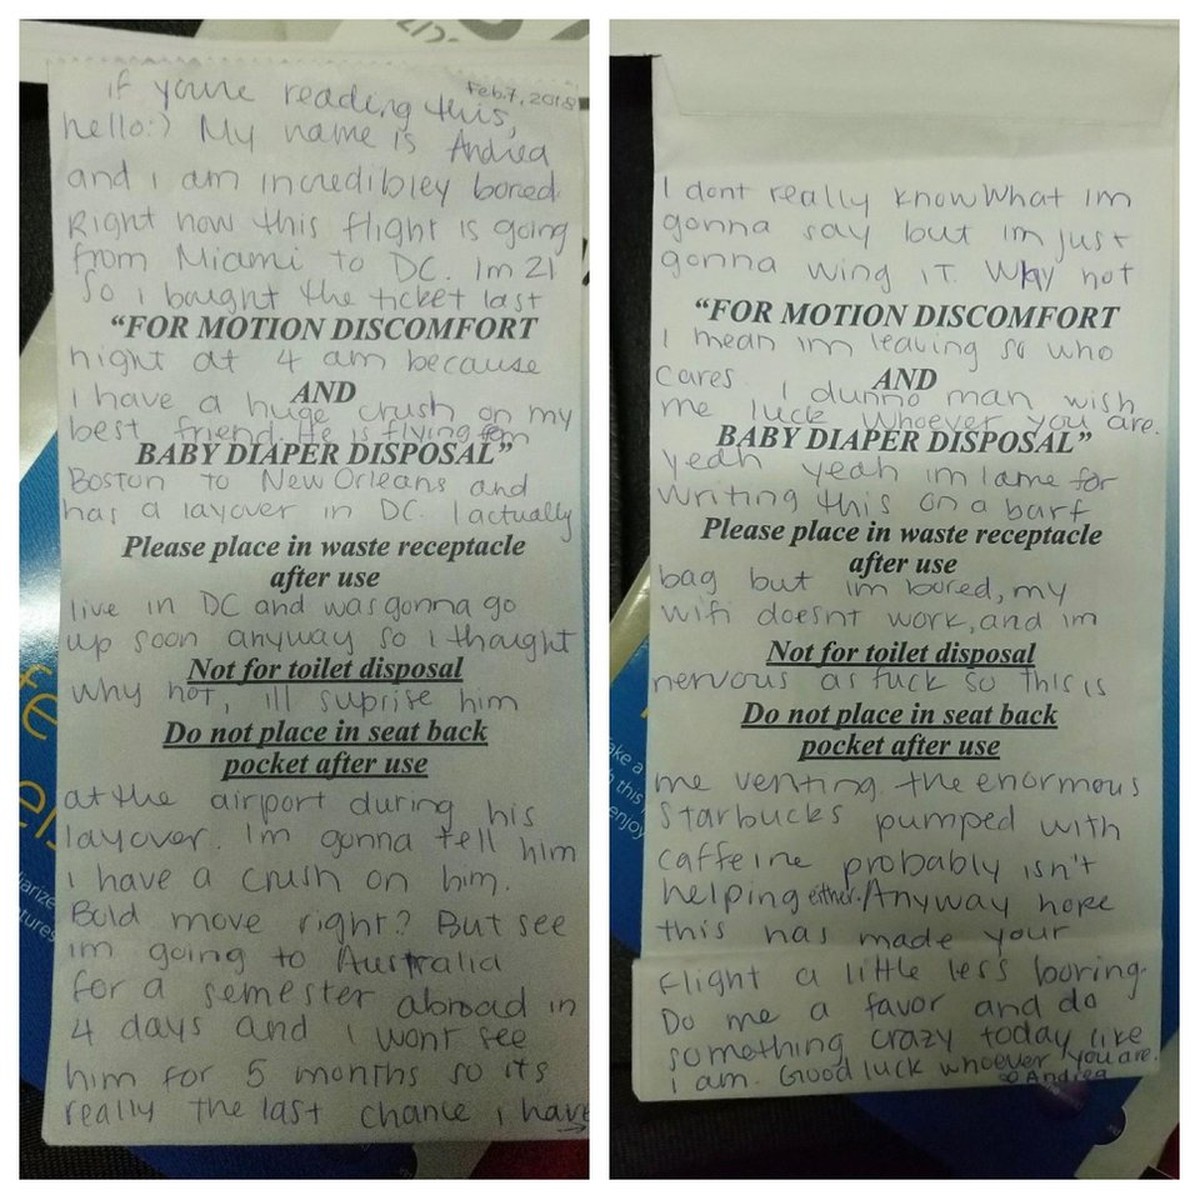 Feb.7, 2018
if youre reading this,
hello:) My name is Andrea
and i am incredibley bored
Right now this flight is going
from Miami to DC. Im 21
So i bought the ticket last
"FOR MOTION DISCOMFORT
night at 4 am because
AND
I have a huge crush on my
best friend. He is flying from
BABY DIAPER DISPOSAL"
Boston to New Orleans and
has a layover in DC. I actually
Please place in waste receptacle
after use
live in DC and was gonna go
up soon anyway so i thought
Not for toilet disposal
why not, ill suprise him
Do not place in seat back
pocket after use
at the airport during his
layover. Im gonna tell him
i have a crush on him.
Bold move right? But see
im going to Australia
for a semester abroad in
4 days and i wont see
him for 5 months so its
really the last chance i have
→
I dont really know What im
gonna say but im just
gonna wing IT. Why not
"FOR MOTION DISCOMFORT
I mean im leaving so who
AND
cares. I dunno man wish
me luck Whoever you are.
BABY DIAPER DISPOSAL"
yeah yeah im lame for
writing this on a barf
Please place in waste receptacle
after use
bag but im bored, my
wifi doesnt work, and im
Not for toilet disposal
nervous as fuck so this is
Do not place in seat back
pocket after use
me venting. the enormous
Starbucks pumped with
caffeine probably isn't
helping either./Anyway hope
this has made your
flight a little less boring.
Do me a favor and do
something crazy today like
i am. Good luck whoever you are.
Andrea